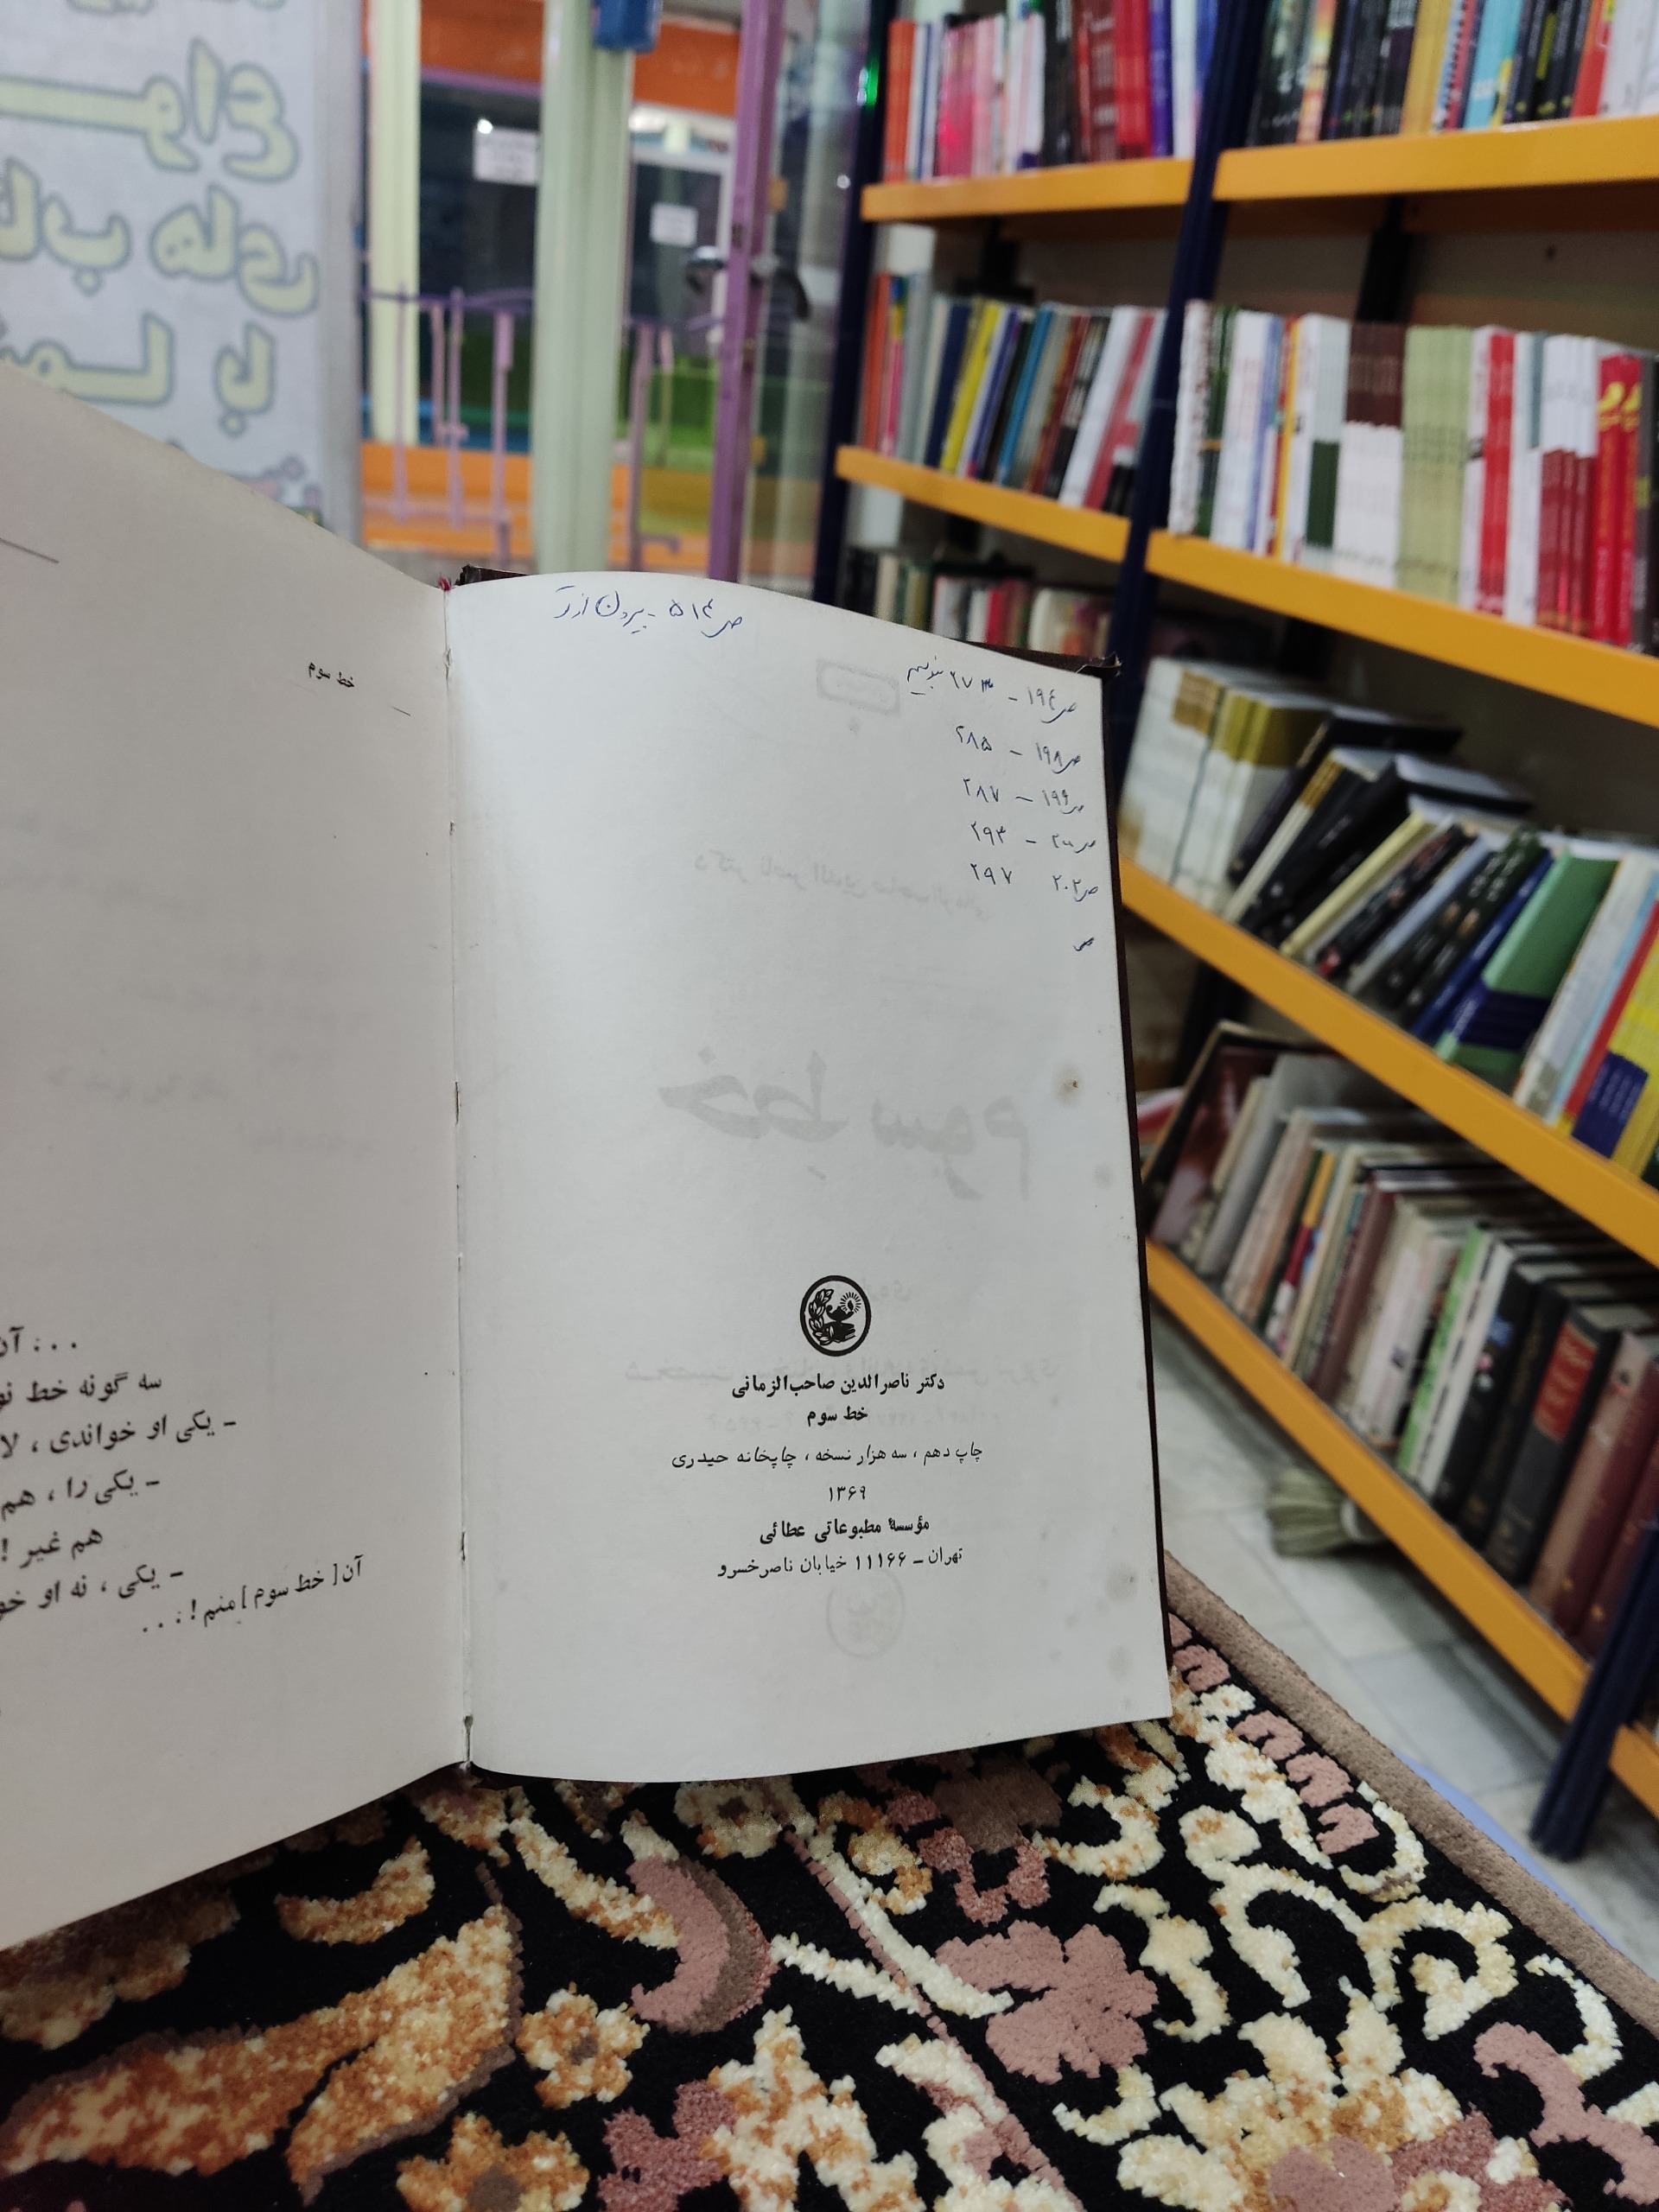 ص ۵۱۴ - بیرون از
ص ۱۹۴ - ۲۷۳
ص ۱۹۸ - ۲۸۵
ص ۱۹۹ - ۲۸۷
ص ۲۰۰ - ۲۹۳
ص ۲۰۲ ۲۹۷
ص
دکتر ناصرالدین صاحب‌الزمانی
خط سوم
چاپ دهم ، سه هزار نسخه ، چاپخانه حیدری
۱۳۶۹
مؤسسهٔ مطبوعاتی عطائی
تهران - ۱۱۱۶۶ خیابان ناصرخسرو
خط سوم
. . : آن
سه گونه خط
- یکی او خواندی ،
- یکی را ، هم
هم غیر !
- یکی ، نه او
آن [ خط سوم ] منم ! : . .
های
با